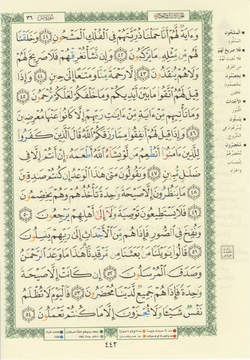 وَءَايَةٌ لَّهُمْ أَنَّا حَمَلْنَا ذُرِّيَّتَهُمْ فِي ٱلْفُلْكِ ٱلْمَشْحُونِ ٤١ وَخَلَقْنَا
لَهُم مِّن مِّثْلِهِۦ مَا يَرْكَبُونَ ٤٢ وَإِن نَّشَأْ نُغْرِقْهُمْ فَلَا صَرِيخَ لَهُمْ
وَلَا هُمْ يُنقَذُونَ ٤٣ إِلَّا رَحْمَةً مِّنَّا وَمَتَٰعًا إِلَىٰ حِينٍ ٤٤ وَإِذَا
قِيلَ لَهُمُ ٱتَّقُوا۟ مَا بَيْنَ أَيْدِيكُمْ وَمَا خَلْفَكُمْ لَعَلَّكُمْ تُرْحَمُونَ ٤٥
وَمَا تَأْتِيهِم مِّنْ ءَايَةٍ مِّنْ ءَايَٰتِ رَبِّهِمْ إِلَّا كَانُوا۟ عَنْهَا مُعْرِضِينَ
٤٦ وَإِذَا قِيلَ لَهُمْ أَنفِقُوا۟ مِمَّا رَزَقَكُمُ ٱللَّهُ قَالَ ٱلَّذِينَ كَفَرُوا۟
لِلَّذِينَ ءَامَنُوٓا۟ أَنُطْعِمُ مَن لَّوْ يَشَآءُ ٱللَّهُ أَطْعَمَهُۥٓ إِنْ أَنتُمْ إِلَّا فِي
ضَلَٰلٍ مُّبِينٍ ٤٧ وَيَقُولُونَ مَتَىٰ هَٰذَا ٱلْوَعْدُ إِن كُنتُمْ صَٰدِقِينَ ٤٨
مَا يَنظُرُونَ إِلَّا صَيْحَةً وَٰحِدَةً تَأْخُذُهُمْ وَهُمْ يَخِصِّمُونَ ٤٩
فَلَا يَسْتَطِيعُونَ تَوْصِيَةً وَلَآ إِلَىٰٓ أَهْلِهِمْ يَرْجِعُونَ ٥٠
وَنُفِخَ فِي ٱلصُّورِ فَإِذَا هُم مِّنَ ٱلْأَجْدَاثِ إِلَىٰ رَبِّهِمْ يَنسِلُونَ ٥١
قَالُوا۟ يَٰوَيْلَنَا مَنۢ بَعَثَنَا مِن مَّرْقَدِنَا هَٰذَا مَا وَعَدَ ٱلرَّحْمَٰنُ
وَصَدَقَ ٱلْمُرْسَلُونَ ٥٢ إِن كَانَتْ إِلَّا صَيْحَةً
وَٰحِدَةً فَإِذَا هُمْ جَمِيعٌ لَّدَيْنَا مُحْضَرُونَ ٥٣ فَٱلْيَوْمَ لَا تُظْلَمُ
نَفْسٌ شَيْـًٔا وَلَا تُجْزَوْنَ إِلَّا مَا كُنتُمْ تَعْمَلُونَ ٥٤
٤٤٣